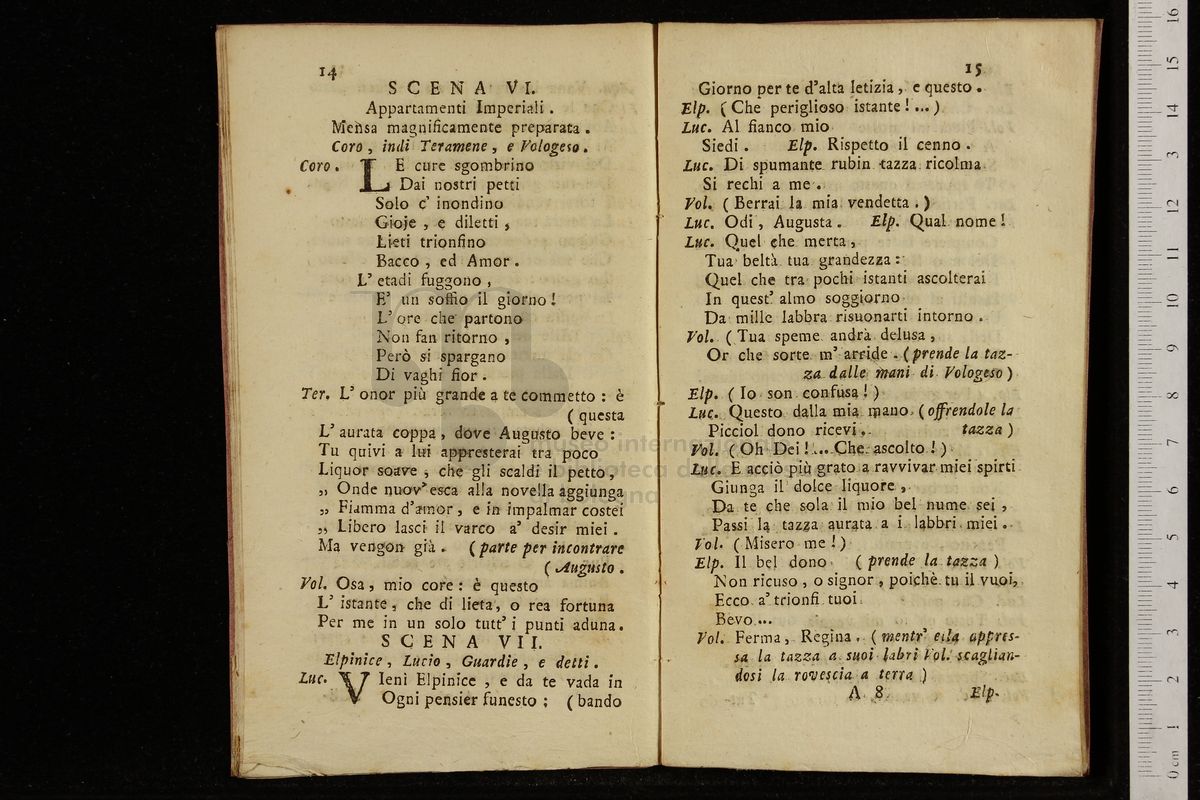 14
SCENA VI.
Appartamenti Imperiali.
Mensa magnificamente preparata.
Coro, indi Teramene, e Vologeso.
Coro. LE cure sgombrino
Dai nostri petti
Solo c' inondino
Gioje, e diletti,
Lieti trionfino
Bacco, ed Amor.
L' etadi fuggono,
E' un soffio il giorno!
L' ore che partono
Non fan ritorno,
Però si spargano
Di vaghi fior.
Ter. L' onor più grande a te commetto: è
(questa
L' aurata coppa, dove Augusto beve:
Tu quivi a lui appresterai tra poco
Liquor soave, che gli scaldi il petto,
„ Onde nuov' esca alla novella aggiunga
„ Fiamma d'amor, e in impalmar costei
„ Libero lasci il varco a' desir miei.
Ma vengon già. (parte per incontrare
(Augusto.
Vol. Osa, mio core: è questo
L' istante, che di lieta, o rea fortuna
Per me in un solo tutt' i punti aduna.
SCENA VII.
Elpinice, Lucio, Guardie, e detti.
Luc. VIeni Elpinice, e da te vada in
Ogni pensier funesto; (bando
15
Giorno per te d'alta letizia, e questo.
Elp. (Che periglioso istante!...)
Luc. Al fianco mio
Siedi. Elp. Rispetto il cenno.
Luc. Di spumante rubin tazza ricolma
Si rechi a me.
Vol. (Berrai la mia vendetta.)
Luc. Odi, Augusta. Elp. Qual nome!
Luc. Quel che merta,
Tua beltà tua grandezza:
Quel che tra pochi istanti ascolterai
In quest' almo soggiorno
Da mille labbra risuonarti intorno.
Vol. (Tua speme andrà delusa,
Or che sorte m' arride. (prende la taz-
za dalle mani di Vologeso)
Elp. (Io son confusa!)
Luc. Questo dalla mia mano. (offrendole la
Picciol dono ricevi. tazza)
Vol. (Oh Dei!... Che ascolto!)
Luc. E acciò più grato a ravvivar miei spirti
Giunga il dolce liquore,
Da te che sola il mio bel nume sei,
Passi la tazza aurata a i labbri miei.
Vol. (Misero me!)
Elp. Il bel dono (prende la tazza)
Non ricuso, o signor, poichè tu il vuoi,
Ecco a' trionfi tuoi
Bevo...
Vol. Ferma, Regina. (mentr' ella appres-
sa la tazza a suoi labri Vol. scaglian-
dosi la rovescia a terra)
A 8 Elp.
museo internazionale
biblioteca della musica
di bologna
0 cm 1 2 3 4 5 6 7 8 9 10 11 12 13 14 15 16